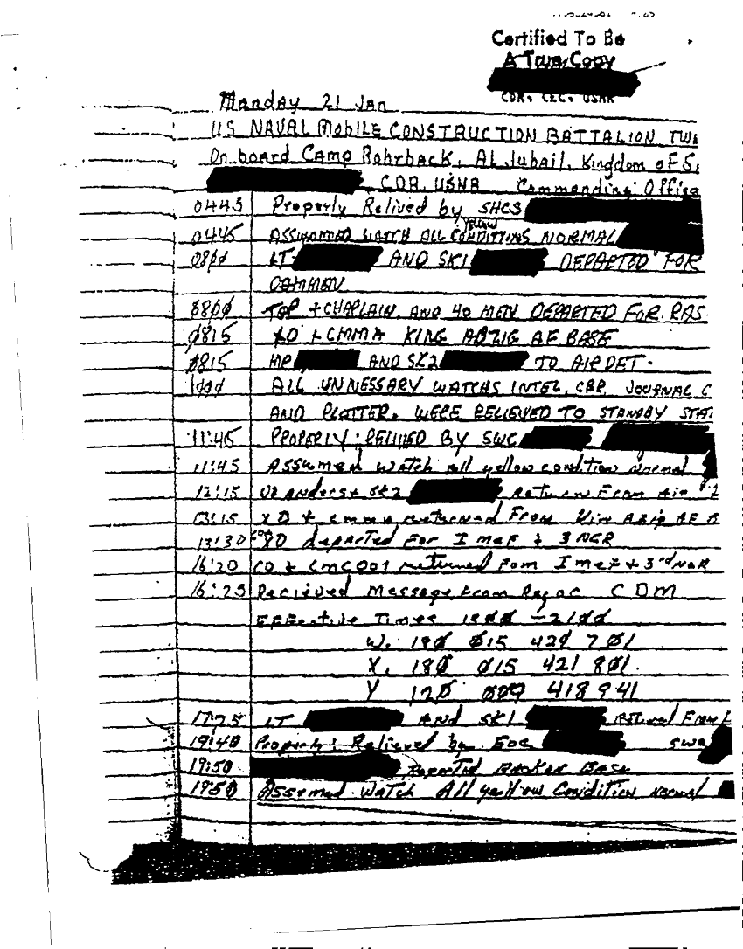 Certified To Be
A True Copy
CDR, CEC, USNR
Monday 21 Jan
US NAVAL MOBILE CONSTRUCTION BATTALION TWE
On board Camp Rohrback, Al Jubail, Kingdom of S
CDR, USNR Commanding Office
0445 Properly Relived by SHCS
0445 ASSUMMED WATCH ALL YELLOW CONDITIONS NORMAL
LT AND SK1 DEPARTED FOR
DAMMAN
TOP + CHAPLAIN AND 40 MEN DEPARTED FOR RAS
0815 XO + CMMA KING ABZIG AF BASE
0815 AND SK2 TO AIR DET.
ALL UNNESSARY WATCHS INTEL, CBR, JOURNAL
AND PLOTTER. WERE RELIEVED TO STANDBY STA
11:45 PROPERLY RELIVED BY SWC
11:45 Assumed watch all yellow condition normal
12:15 SK2 return From Air
XO + cmma returned From Kin AF
13:30 departed For I mef + 3 NCR
16:20 CO + returned From I mef + 3rd NCR
16:25 Recieved Message From CDM
Effective Times 1800 - 2100
W. 180 015 421 701
X. 180 015 421 801
Y 120 418 941
17:25 LT And SK1 Retuned From
19:40 Properly Relieved by EOC
19:50 Base
1950 Assumed Watch All yellow Condition normal